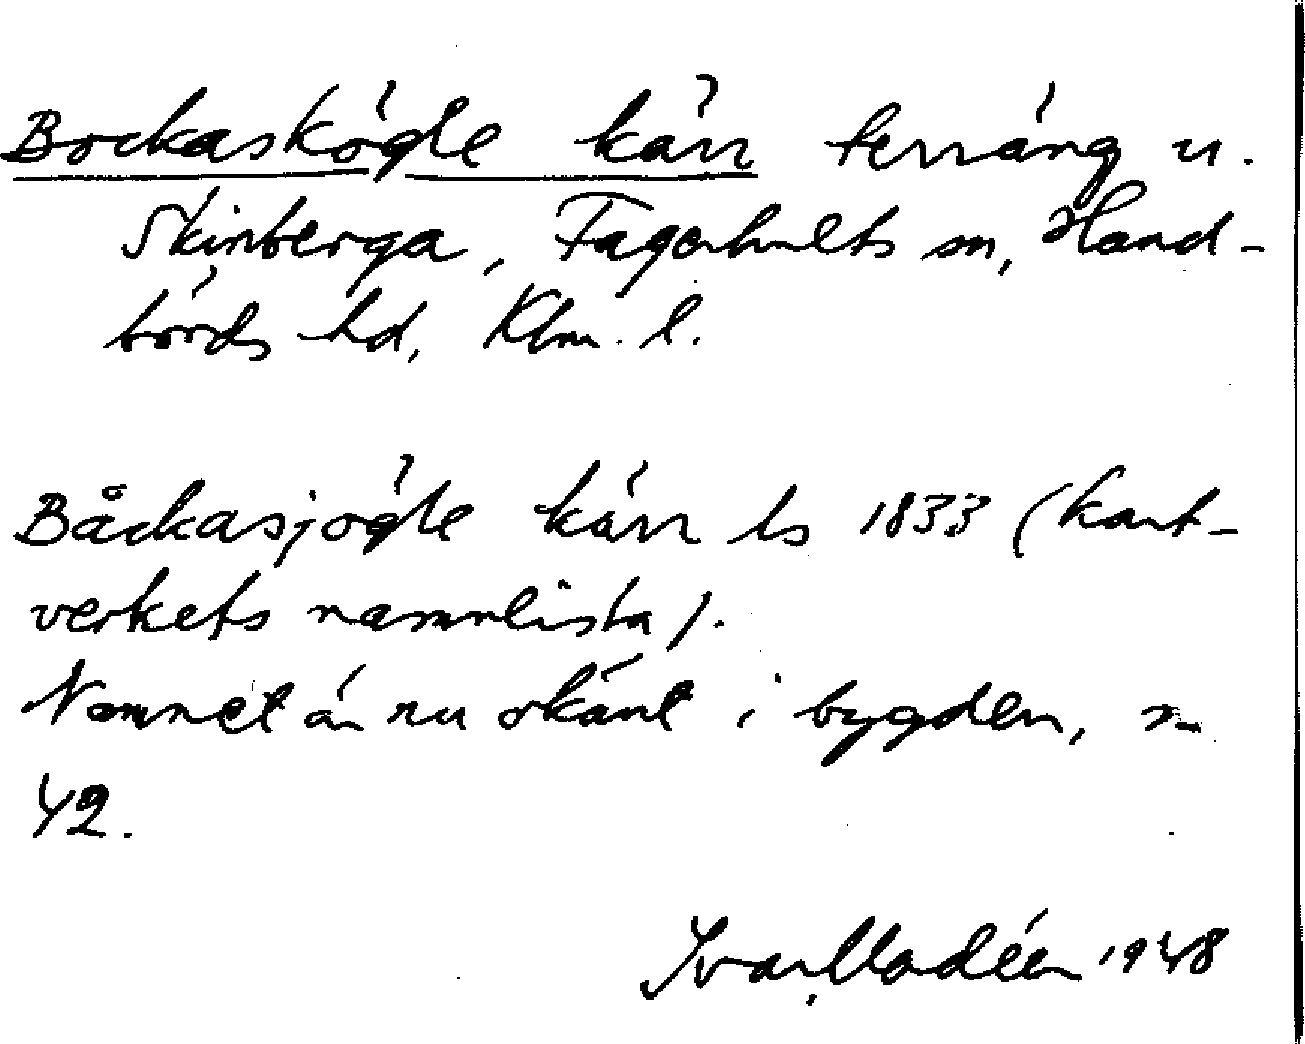 Bockaskögle kärr terräng u.
Skinberga, Fagerhults sn, Hand-
börds hd, Klm. l.
Båckasjögle kärr ls 1833 (kart-
verkets namnlista).
Namnet är nu okänt i bygden,
42.
Ivar Modéer 1948